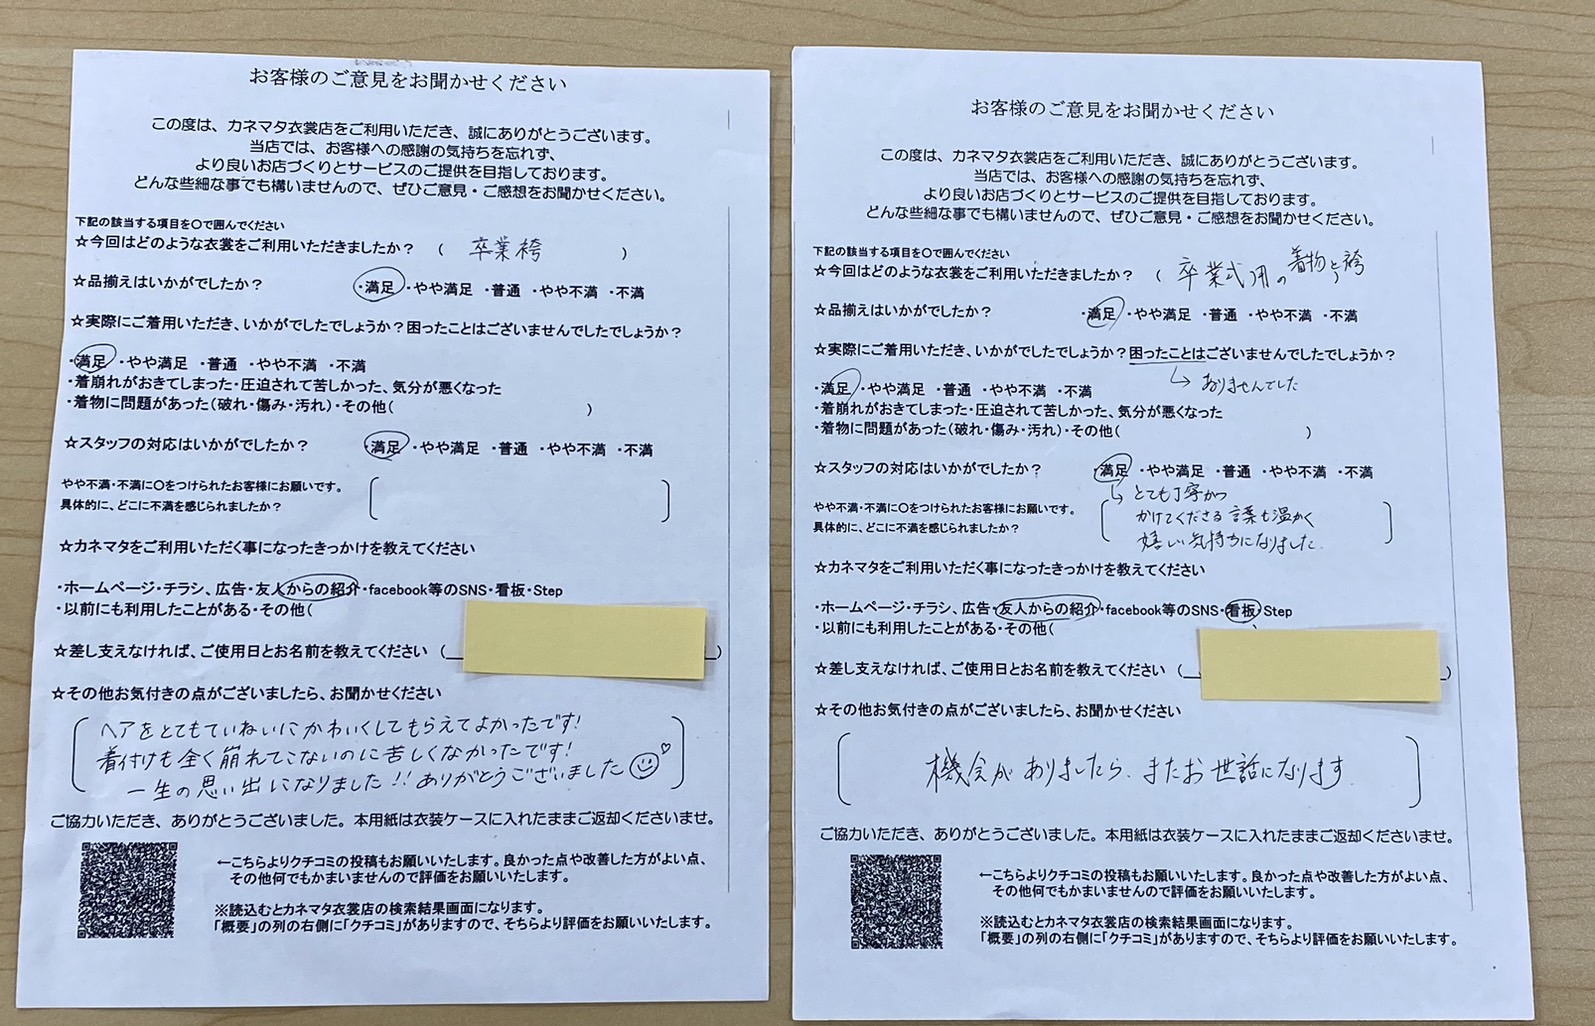 お客様のご意見をお聞かせください
この度は、カネマタ衣裳店をご利用いただき、誠にありがとうございます。
当店では、お客様への感謝の気持ちを忘れず、
より良いお店づくりとサービスのご提供を目指しております。
どんな些細な事でも構いませんので、ぜひご意見・ご感想をお聞かせください。
下記の該当する項目を〇で囲んでください
☆今回はどのような衣裳をご利用いただきましたか？ （ 卒業袴 ）
☆品揃えはいかがでしたか？ ・満足 ・やや満足 ・普通 ・やや不満 ・不満
☆実際にご着用いただき、いかがでしたでしょうか？困ったことはございませんでしたでしょうか？
・満足 ・やや満足 ・普通 ・やや不満 ・不満
・着崩れがおきてしまった・圧迫されて苦しかった、気分が悪くなった
・着物に問題があった（破れ・傷み・汚れ）・その他（ ）
☆スタッフの対応はいかがでしたか？ ・満足 ・やや満足 ・普通 ・やや不満 ・不満
やや不満・不満に〇をつけられたお客様にお願いです。
具体的に、どこに不満を感じられましたか？
☆カネマタをご利用いただく事になったきっかけを教えてください
・ホームページ・チラシ、広告・友人からの紹介・facebook等のSNS・看板・Step
・以前にも利用したことがある・その他（
☆差し支えなければ、ご使用日とお名前を教えてください （ ）
☆その他お気付きの点がございましたら、お聞かせください
ヘアをとてもていねいにかわいくしてもらえてよかったです！
着付けも全く崩れてこないのに苦しくなかったです！
一生の思い出になりました！！ありがとうございました
ご協力いただき、ありがとうございました。本用紙は衣装ケースに入れたままご返却くださいませ。
←こちらよりクチコミの投稿もお願いいたします。良かった点や改善した方がよい点、
その他何でもかまいませんので評価をお願いいたします。
※読込むとカネマタ衣裳店の検索結果画面になります。
「概要」の列の右側に「クチコミ」がありますので、そちらより評価をお願いいたします。
お客様のご意見をお聞かせください
この度は、カネマタ衣裳店をご利用いただき、誠にありがとうございます。
当店では、お客様への感謝の気持ちを忘れず、
より良いお店づくりとサービスのご提供を目指しております。
どんな些細な事でも構いませんので、ぜひご意見・ご感想をお聞かせください。
下記の該当する項目を〇で囲んでください
☆今回はどのような衣裳をご利用いただきましたか？ （ 卒業式用の着物と袴
☆品揃えはいかがでしたか？ ・満足 ・やや満足 ・普通 ・やや不満 ・不満
☆実際にご着用いただき、いかがでしたでしょうか？困ったことはございませんでしたでしょうか？
ありませんでした
・満足 ・やや満足 ・普通 ・やや不満 ・不満
・着崩れがおきてしまった・圧迫されて苦しかった、気分が悪くなった
・着物に問題があった（破れ・傷み・汚れ）・その他（ ）
☆スタッフの対応はいかがでしたか？ ・満足 ・やや満足 ・普通 ・やや不満 ・不満
とても丁寧かつ
やや不満・不満に〇をつけられたお客様にお願いです。
かけてくださる言葉も温かく
具体的に、どこに不満を感じられましたか？
嬉しい気持ちになりました。
☆カネマタをご利用いただく事になったきっかけを教えてください
・ホームページ・チラシ、広告・友人からの紹介・facebook等のSNS・看板・Step
・以前にも利用したことがある・その他（
☆差し支えなければ、ご使用日とお名前を教えてください （ ）
☆その他お気付きの点がございましたら、お聞かせください
機会がありましたら、またお世話になります
ご協力いただき、ありがとうございました。本用紙は衣装ケースに入れたままご返却くださいませ。
←こちらよりクチコミの投稿もお願いいたします。良かった点や改善した方がよい点、
その他何でもかまいませんので評価をお願いいたします。
※読込むとカネマタ衣裳店の検索結果画面になります。
「概要」の列の右側に「クチコミ」がありますので、そちらより評価をお願いいたします。